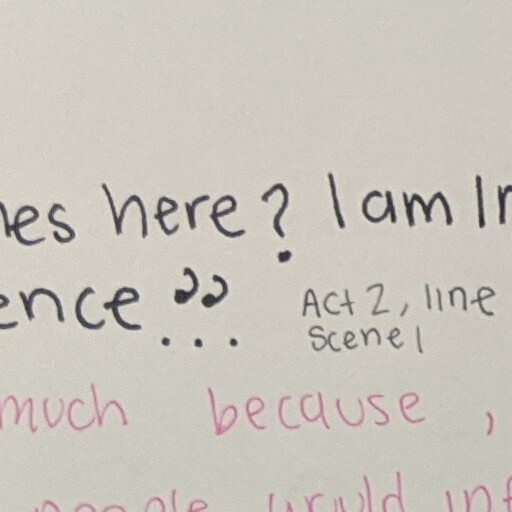 es here? I am In
ence”...
Act 2, line
Scene 1
much because,
people would inf